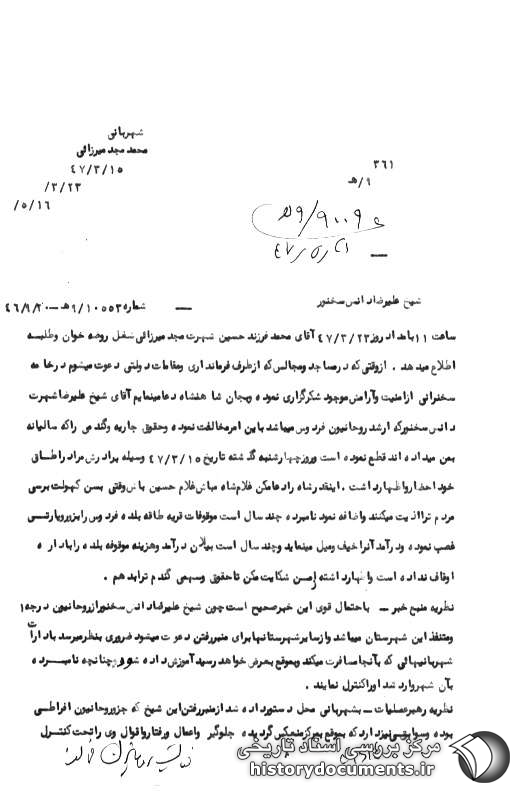 شهربانی
محمد مجد میرزائی
۳۶۱
۴۷/۳/۱۵
۹/هـ
/۳/۲۳
/۵/۱۶
۹۰۰۹/۹هـ
شیخ علیرضا دانس سخنور
شماره ۹/۱۰۵۵۳هـ — ۴۶/۹/۲۰
ساعت ۱۱ بامداد روز ۴۷/۳/۲۳ آقای محمد فرزند حسین شهرت مجد میرزائی شغل روضه خوان وطلیسه
اطلاع میدهد . ازوقتی که درمساجد ومجالس که ازطرف فرمانداری ومقامات دولتی دعوت میشوم درخاتمه
سخنرانی ازامنیت وآرامش موجود شکرگزاری نموده وبجان شاهنشاه دعامینمایم آقای شیخ علیرضا شهرت
دانس سخنورکه ارشد روحانیون فردوس میباشد باین امرمخالفت نموده وحقوق جاریه وگندمی راکه سالیانه
بمن میداده اند قطع نموده است وروزچهارشنبه گذشته تاریخ ۴۷/۳/۱۵ وسیله برادرش مراد راطاق
خود احضارواظهارداشت . اینقدرشاه رادعامکن غلام شاه مباش غلام حسین باش وقتی بسن کهولت برسی
مردم ترااذیت میکنند واضافه نمود نامبرده چند سال است موقوفات قریه طاقه بلده فردوس رابزوروپارتی
غصب نموده ودرآمد آنراحیف ومیل مینماید وچند سال است بیلان درآمد وهزینه موقوفه بلده رابادارِه
اوقاف نداده است واظهارداشته ازمن شکایت مکن تاحقوق وسهمی گندم ترابدهم .
نظریه منبع خبر — باحتمال قوی این خبرصحیح است چون شیخ علیرضا دانس سخنورازروحانیون درجه ۱
ومتنفذ این شهرستان میباشد وازسایرشهرستانهابرای منبررفتن دعوت میشود ضروری بنظرمیرسد بادارات
شهربانیهائی که بآنجامسافرت میکند وبموقع بعرض خواهد رسید آموزش داده شود چنانچه نامبرده
بآن شهروارد شد اوراکنترل نمایند .
نظریه رهبرعملیات — بشهربانی محل دستورداده شد ازمنبررفتن این شیخ که جزوروحانیون افراطی
بوده وسوابقی نیزدارد که بموقع بمرکزمنعکس گردیده جلوگیر واعمال ورفتارواقوال وی راتحت کنترل
مرکز بررسی اسناد تاریخی
historydocuments.ir